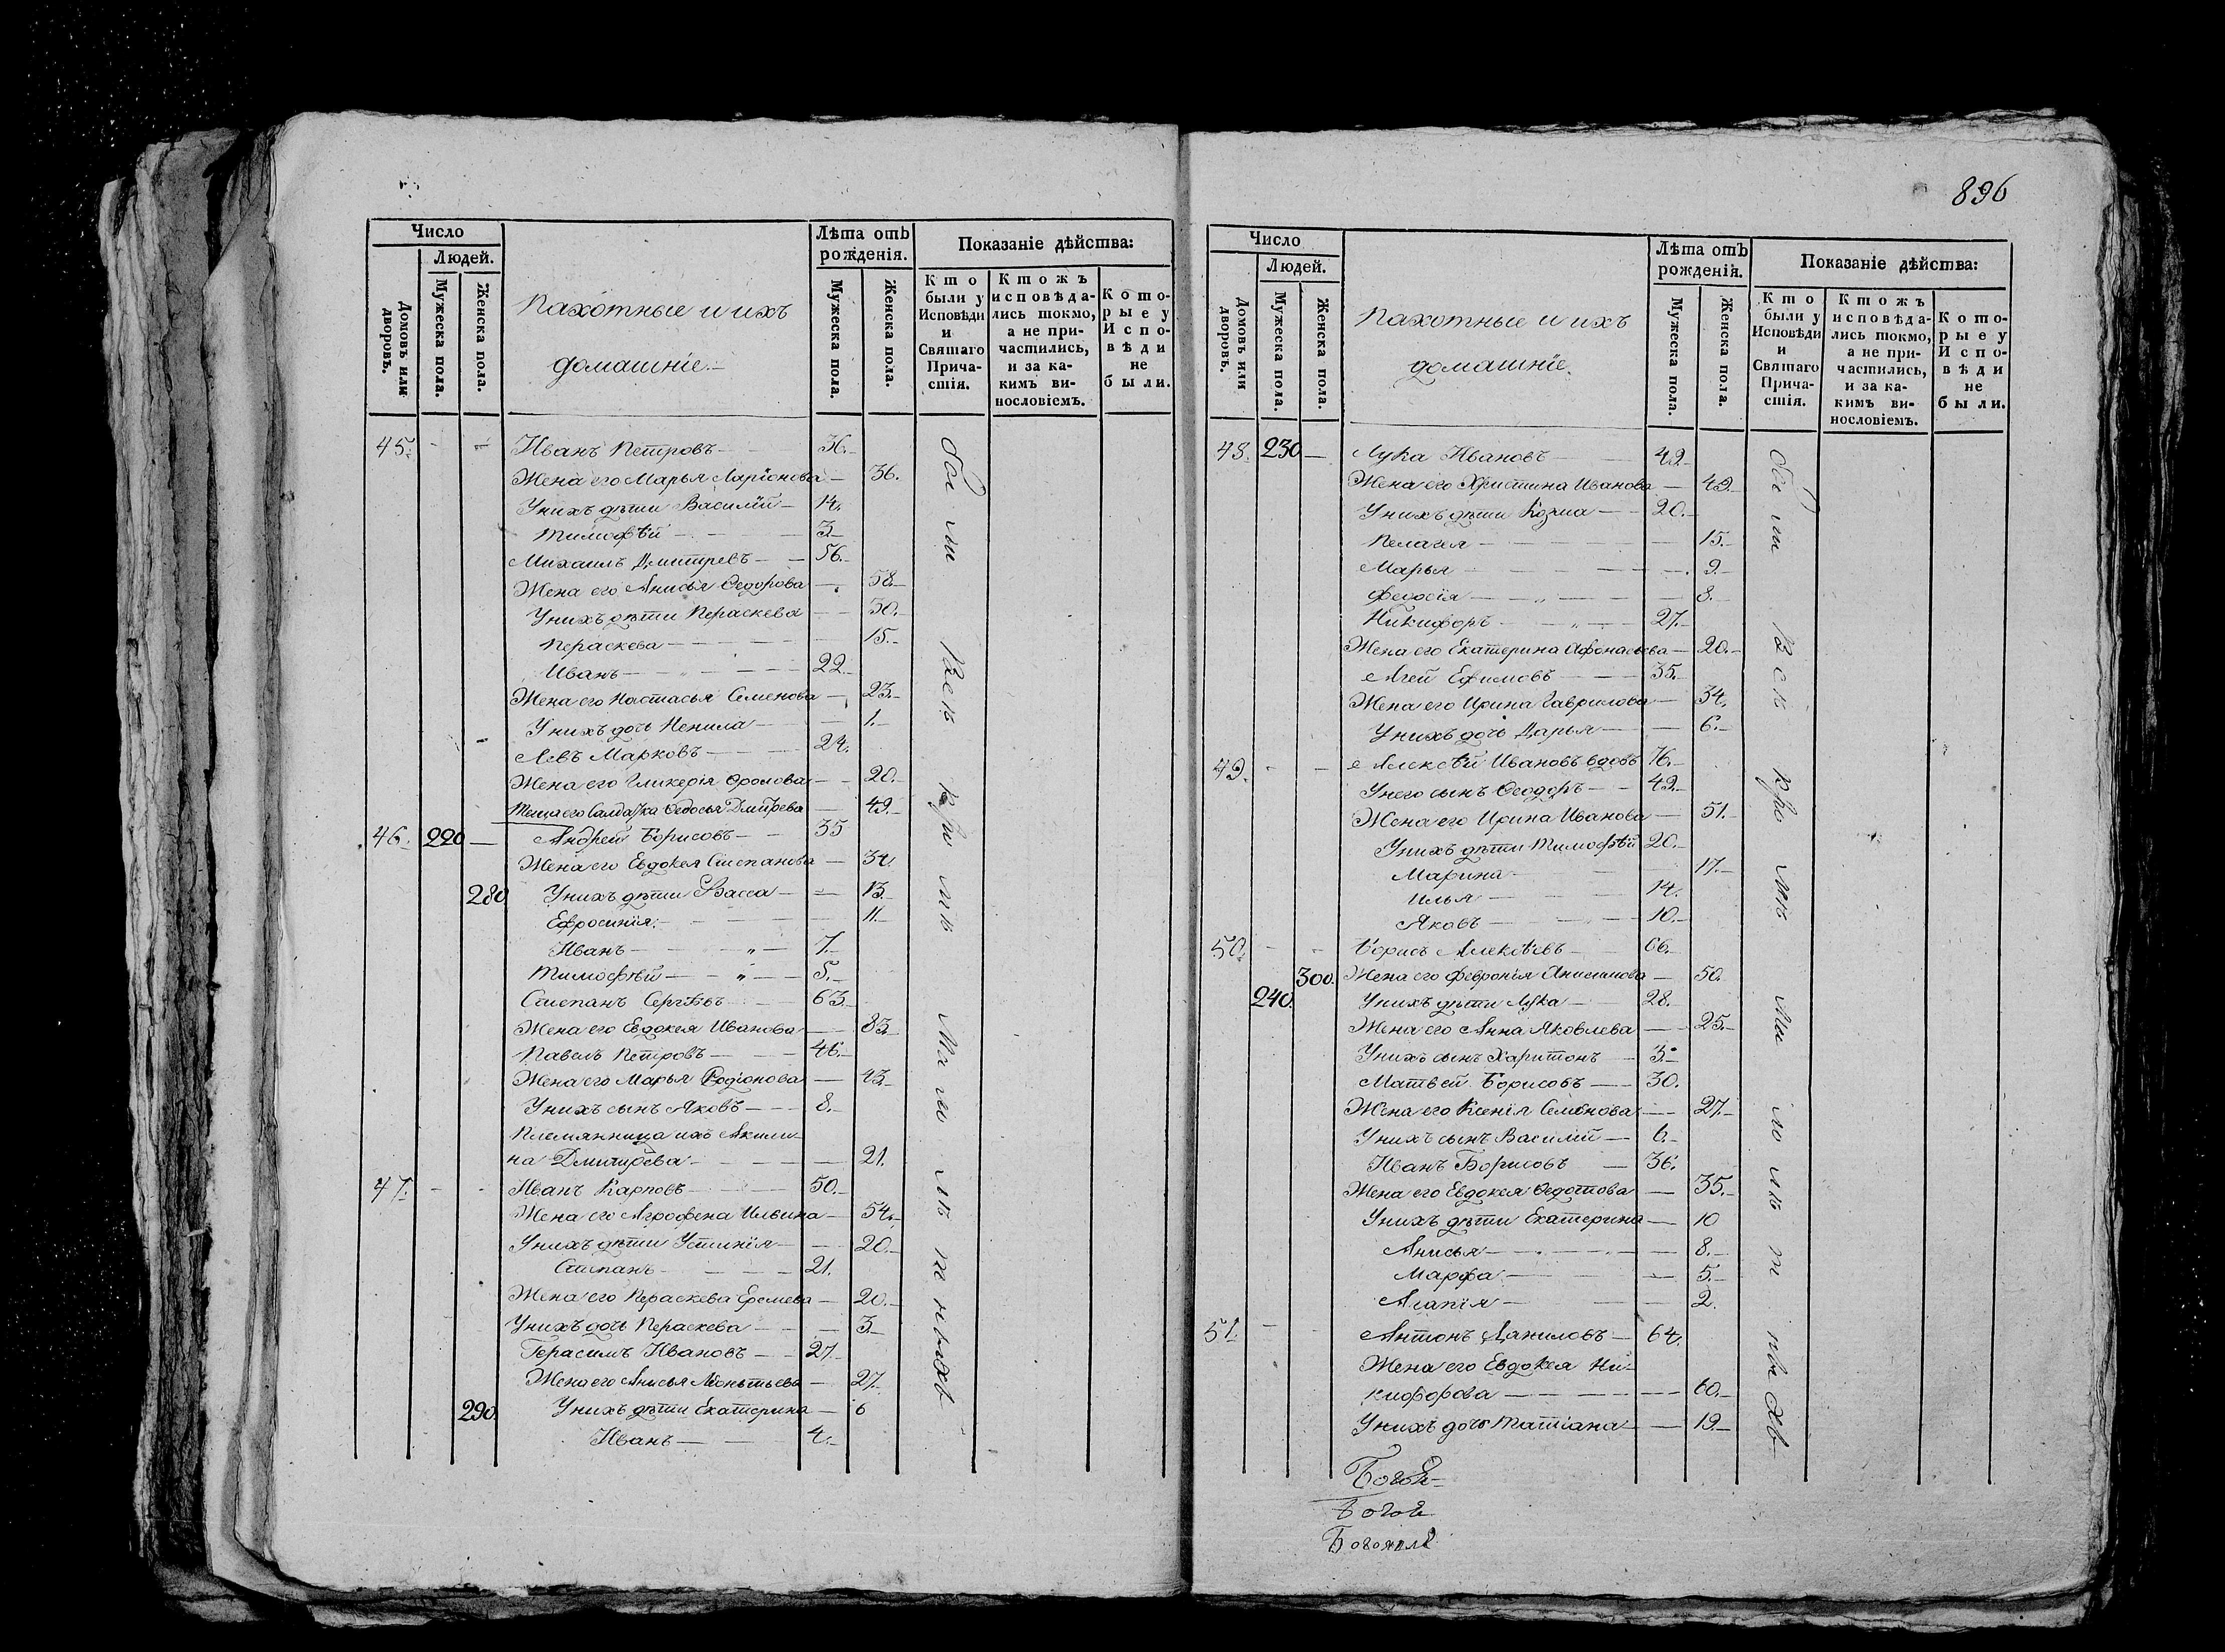 Число
Людей.
Домовъ или дворовъ.
Мужеска пола.
Женска пола.
Пахотные и ихъ
домашніе.
Лѣта отъ рожденія.
Мужеска пола.
Женска пола.
Показаніе дѣйства:
Кто были у Исповѣди и Святаго Причастія.
Ктожъ исповѣдались токмо, а не причастились, и за какимъ винословіемъ.
Которые у Исповѣди не были.
45. - - Иванъ Петровъ 36.
Жена его Марья Ларіонова 36.
У нихъ дѣти Василій 14.
Тимофѣй 3.
Михаилъ Дмитревъ 56.
Жена его Анисья Ѳедорова 58.
У нихъ дѣти Пераскева 30.
Пераскева 15.
Иванъ 22.
Жена его Настасья Семенова 23.
У нихъ дочь Ненила 1.
Левъ Марковъ 24.
Жена его Гликерія Фролова 20.
Ѳедосья Дмитрева 49.
46. 220 Андрей Борисовъ 35
Жена его Евдокея Степанова 34.
280 У нихъ дѣти Васса 13.
Ефросинія 11.
Иванъ 7.
Тимофѣй 5.
Степанъ Сергѣевъ 63.
Жена его Евдокея Иванова 83.
Павелъ Петровъ 46.
Жена его Марья Родіонова 43.
У нихъ сынъ Яковъ 8.
Племянница ихъ Акили-
на Дмитрева 21.
47. - - Иванъ Карповъ 50.
Жена его Агрофена Ильина 54.
У нихъ дѣти Устинія 20.
Степанъ 21.
Жена его Пераскева Еремева 20.
У нихъ дочь Пераскева 3.
Герасимъ Ивановъ 27.
Жена его Анисья Леонтьева 27.
290. У нихъ дѣти Екатерина 6
Иванъ 4.
896
Число
Людей.
Домовъ или дворовъ.
Мужеска пола.
Женска пола.
Пахотные и ихъ
домашніе.
Лѣта отъ рожденія.
Мужеска пола.
Женска пола.
Показаніе дѣйства:
Кто были у Исповѣди и Святаго Причастія.
Ктожъ исповѣдались токмо, а не причастились, и за какимъ винословіемъ.
Которые у Исповѣди не были.
48. 230 Лука Ивановъ 49.
Жена его Христина Иванова 49.
У нихъ дѣти Козма 20.
Пелагея 15.
Марья 9.
Феодосія 8.
Никифоръ 27.
Жена его Екатерина Афонасьева 20.
Агей Ефимовъ 35.
Жена его Ирина Гаврилова 34.
У нихъ дочь Дарья 6.
49. - - Алексѣй Ивановъ вдовъ 76.
У него сынъ Ѳеодоръ 49.
Жена его Ирина Иванова 51.
У нихъ дѣти Тимофѣй 20.
Марина 17.
Илья 14.
Яковъ 10.
50. - - Борисъ Алексѣевъ 66.
300. Жена его Февронія Анисимова 50.
240. У нихъ дѣти Лука 28.
Жена его Анна Яковлева 25.
У нихъ сынъ Харитонъ 3.
Матвей Борисовъ 30.
Жена его Ксенія Семенова 27.
У нихъ сынъ Василій 6.
Иванъ Борисовъ 36.
Жена его Евдокея Ѳедотова 35.
У нихъ дѣти Екатерина 10
Анисья 8.
Марфа 5.
Агапія 2.
51. - - Антонъ Даниловъ 64.
Жена его Евдокея Ни-
кифорова 60.
У нихъ дочь Татіана 19.